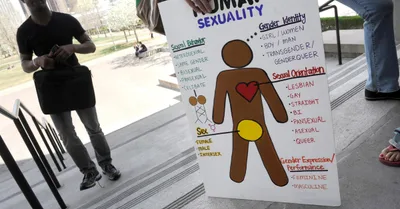 HUMAN
SEXUALITY
Gender Identity
GIRL/WOMEN
BOY/MAN
TRANSGENDER/
GENDERQUEER
Sexual Behavior
HETEROSEXUAL
SAME GENDER
BISEXUAL
CELIBATE
Sexual Orientation
LESBIAN
GAY
STRAIGHT
BI
PANSEXUAL
ASEXUAL
QUEER
Sex
FEMALE
MALE
INTERSEX
Gender Expression/
Performance
FEMININE
MASCULINE